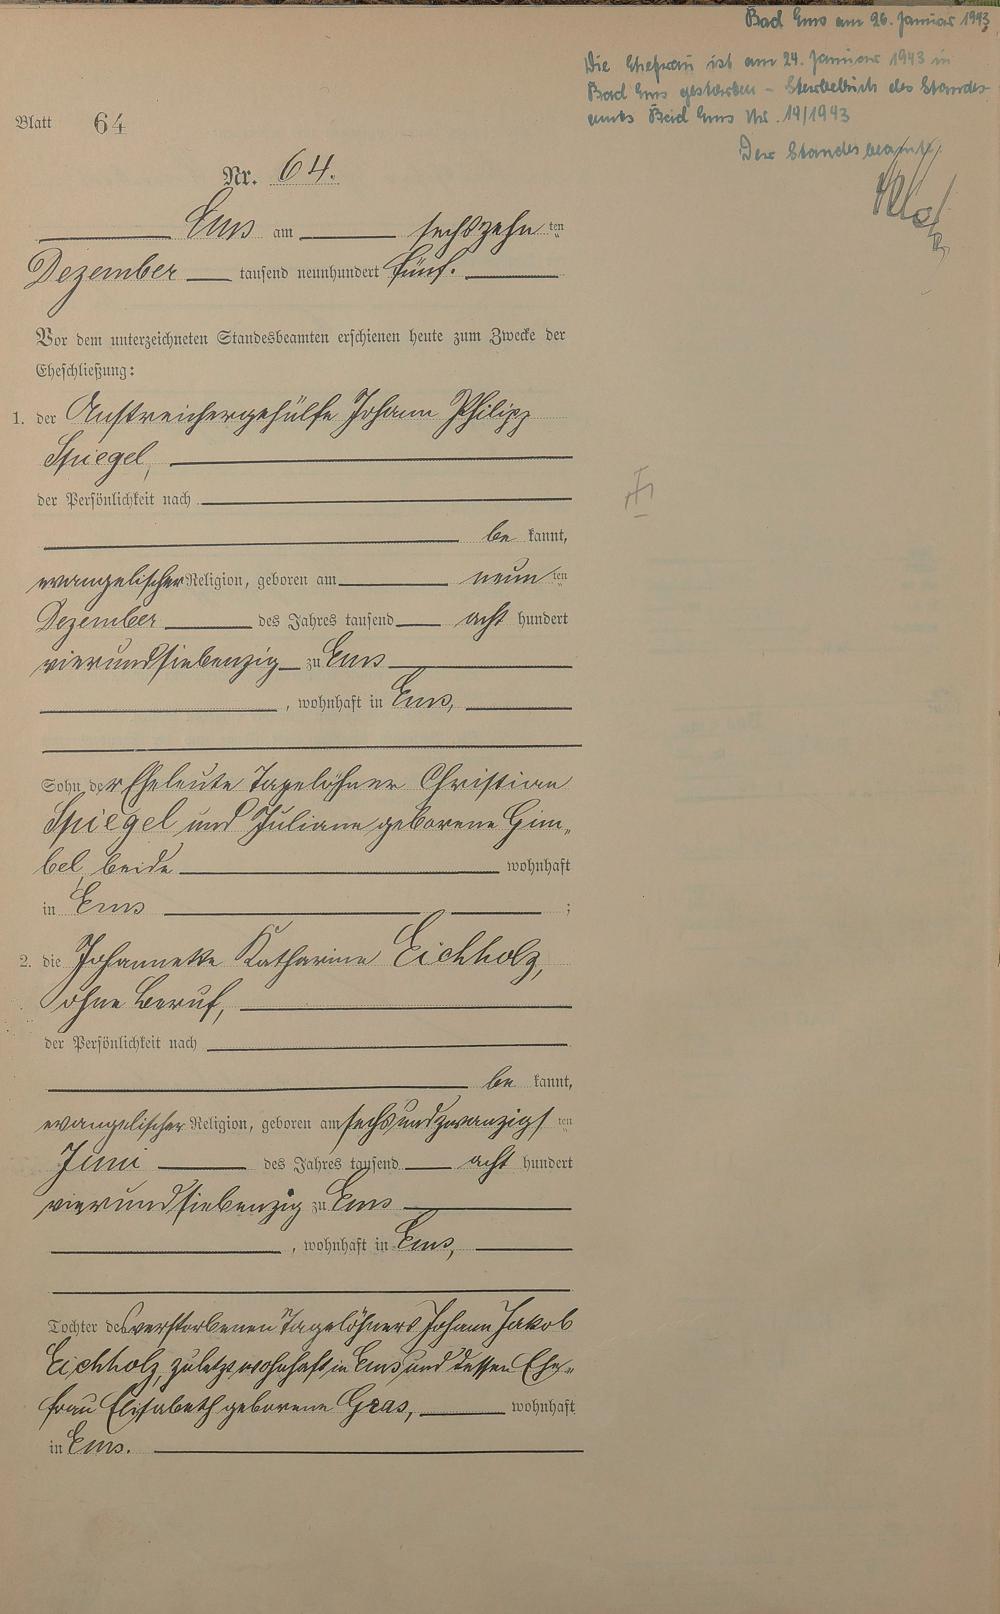 Bad Ems am 26. Januar 1943
Die Ehefrau ist am 24. Januar 1943 in
Bad Ems gestorben – Sterbebuch des Standes-
amts Bad Ems Nr. 14/1943
Der Standesbeamte
Blatt 64
Nr. 64.
Ems am sechszehn ten
Dezember tausend neunhundert fünf.
Vor dem unterzeichneten Standesbeamten erschienen heute zum Zwecke der
Eheschließung:
1. der Anstreichergehülfe Johann Philipp
Spiegel,
der Persönlichkeit nach
be kannt,
evangelischer Religion, geboren am neun ten
Dezember des Jahres tausend acht hundert
vierundsiebenzig zu Ems
, wohnhaft in Ems,
Sohn der Eheleute Tagelöhner Christian
Spiegel und Juliane geborene Gim„
bel, beide wohnhaft
in Ems ;
2. die Johannette Katharine Eichholz,
ohne Beruf,
der Persönlichkeit nach
be kannt,
evangelischer Religion, geboren am sechsundzwanzigs ten
Juni des Jahres tausend acht hundert
vierundsiebenzig zu Ems
, wohnhaft in Ems,
Tochter des verstorbenen Tagelöhners Johann Jakob
Eichholz, zuletzt wohnhaft in Ems und dessen Ehe„
frau Elisabeth geborene Gras, wohnhaft
in Ems.